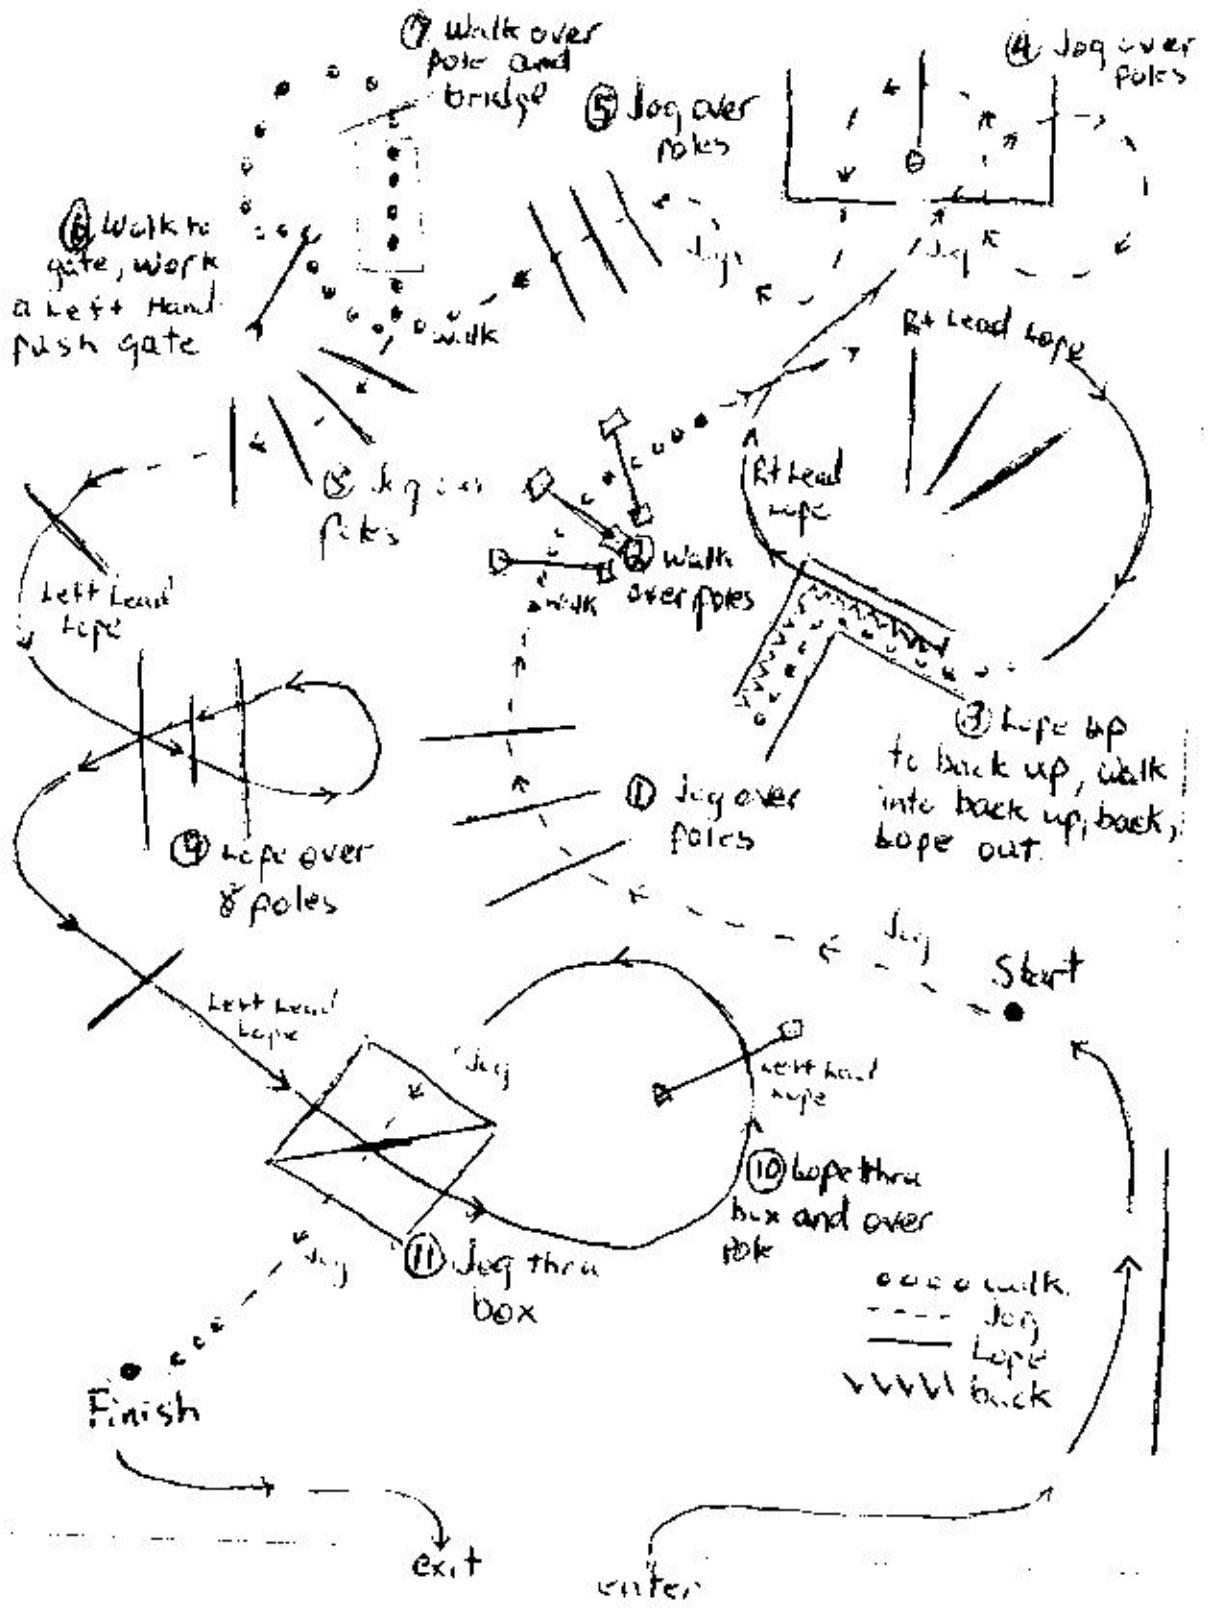 ⑦ Walk over
pole and
bridge
④ Jog over
poles
⑤ Jog over
poles
⑥ Walk to
gate, work
a Left Hand
push gate
Jog
Jog
walk
Rt Lead Lope
⑧ Jog over
poles
Rt Lead
Lope
② Walk
over poles
walk
Left Lead
Lope
③ Lope up
to back up, walk
into back up, back,
Lope out.
① Jog over
poles
⑨ Lope over
8 poles
Jog
Start
Left Lead
Lope
Jog
Left Lead
Lope
⑩ Lope thru
box and over
pole
⑪ Jog thru
box
Jog
walk
Jog
Lope
back
Finish
exit
enter